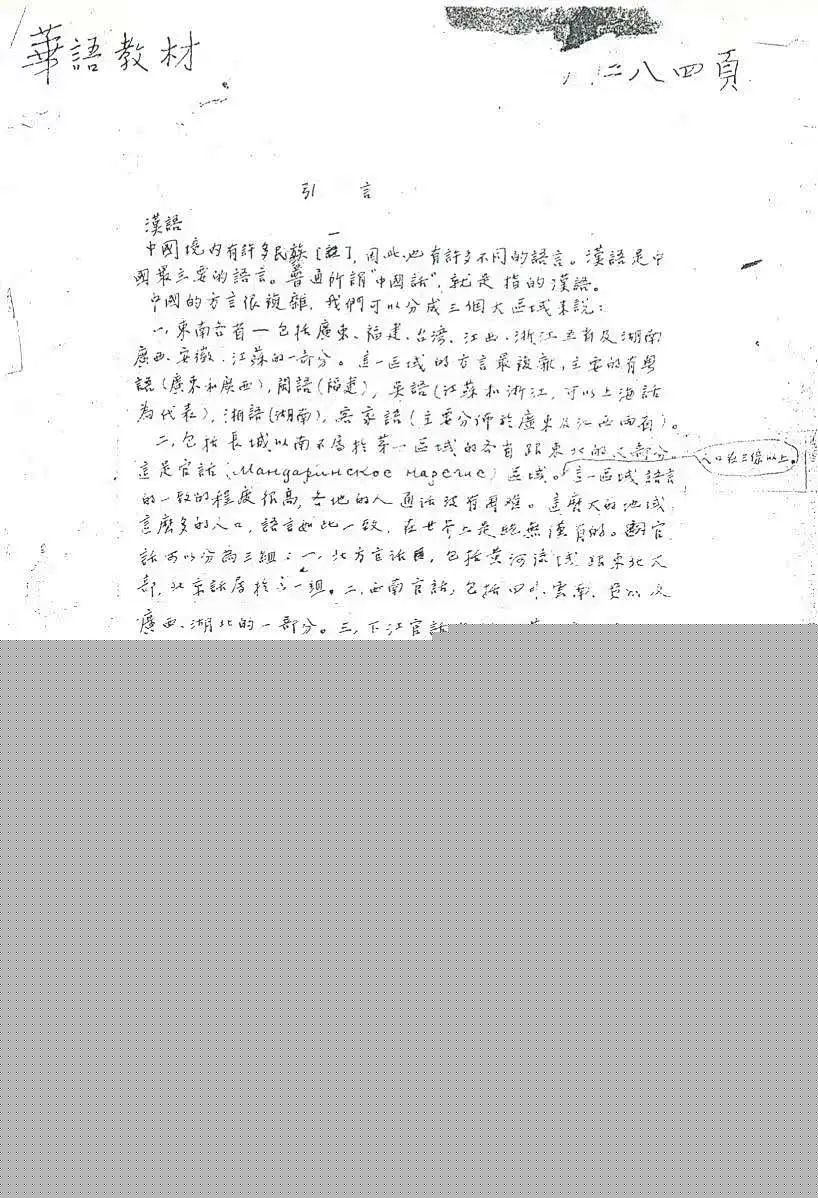 華語教材
二八四頁
引 言
漢語
一
中國境内有許多民族[註],因此也有許多不同的語言。漢語是中
國最主要的語言。普通所謂"中國話",就是指的漢語。
中國的方言很複雜,我們可以分成三個大區域來說:
一、東南各省—包括廣東、福建、台灣、江西、浙江五省及湖南
廣西、安徽、江蘇的一部分。這一區域的方言最複雜,主要的有粵
語(廣東和廣西),閩語(福建),吳語(江蘇和浙江,可以上海話
為代表),湘語(湖南),客家語(主要分佈於廣東及江西兩省)。
二、包括長城以南不屬於第一區域的各省跟東北的大部分。
人口在三億以上。
這是官話(Мандаринское наречие)區域。這一區域語言
的一致的程度很高,各地的人通話没有困難。這麼大的地域
這麼多的人口,語言如此一致,在世界上是絕無僅有的。官
話可以分為三組:一、北方官話,包括黄河流域跟東北大
部,北京話屬於這一組。二、西南官話,包括四川、雲南、貴州及
廣西、湖北的一部分。三、下江官話